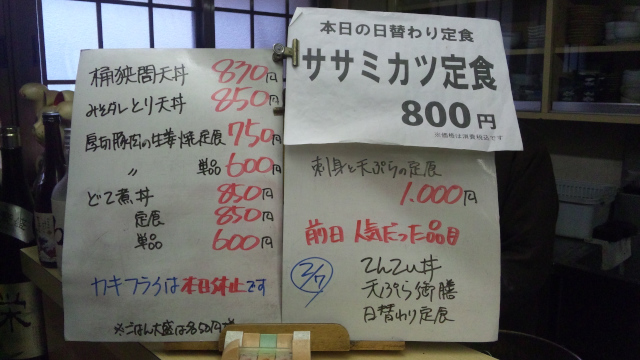 桶狭間天丼 830円
みそダレとり天丼 850円
厚切豚肉の生姜焼定食 750円
〃 単品 600円
どて煮丼 850円
定食 850円
単品 600円
カキフライは本日休止です
※ごはん大盛は
本日の日替わり定食
ササミカツ定食
800円
※価格は消費税込です
刺身と天ぷらの定食
1.000円
前日 人気だった品目
2/7
てんてい丼
天ぷら御膳
日替わり定食